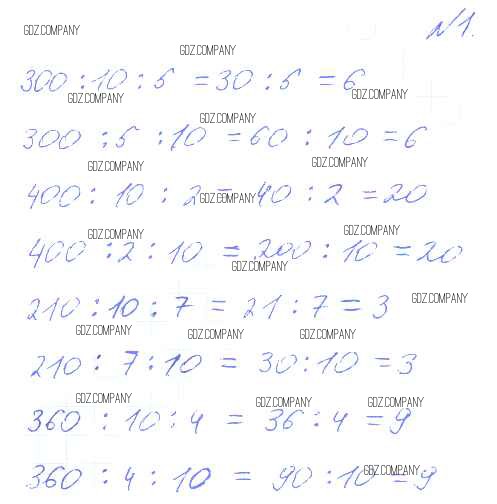 GDZ.COMPANY
№1.
GDZ.COMPANY
300 : 10 : 5 = 30 : 5 = 6
GDZ.COMPANY GDZ.COMPANY
GDZ.COMPANY
300 : 5 : 10 = 60 : 10 = 6
GDZ.COMPANY GDZ.COMPANY
400 : 10 : 2 = 40 : 2 = 20
GDZ.COMPANY
GDZ.COMPANY GDZ.COMPANY
400 : 2 : 10 = 200 : 10 = 20
GDZ.COMPANY
GDZ.COMPANY
210 : 10 : 7 = 21 : 7 = 3
GDZ.COMPANY GDZ.COMPANY GDZ.COMPANY
210 : 7 : 10 = 30 : 10 = 3
GDZ.COMPANY GDZ.COMPANY GDZ.COMPANY
360 : 10 : 4 = 36 : 4 = 9
GDZ.COMPANY
360 : 4 : 10 = 90 : 10 = 9